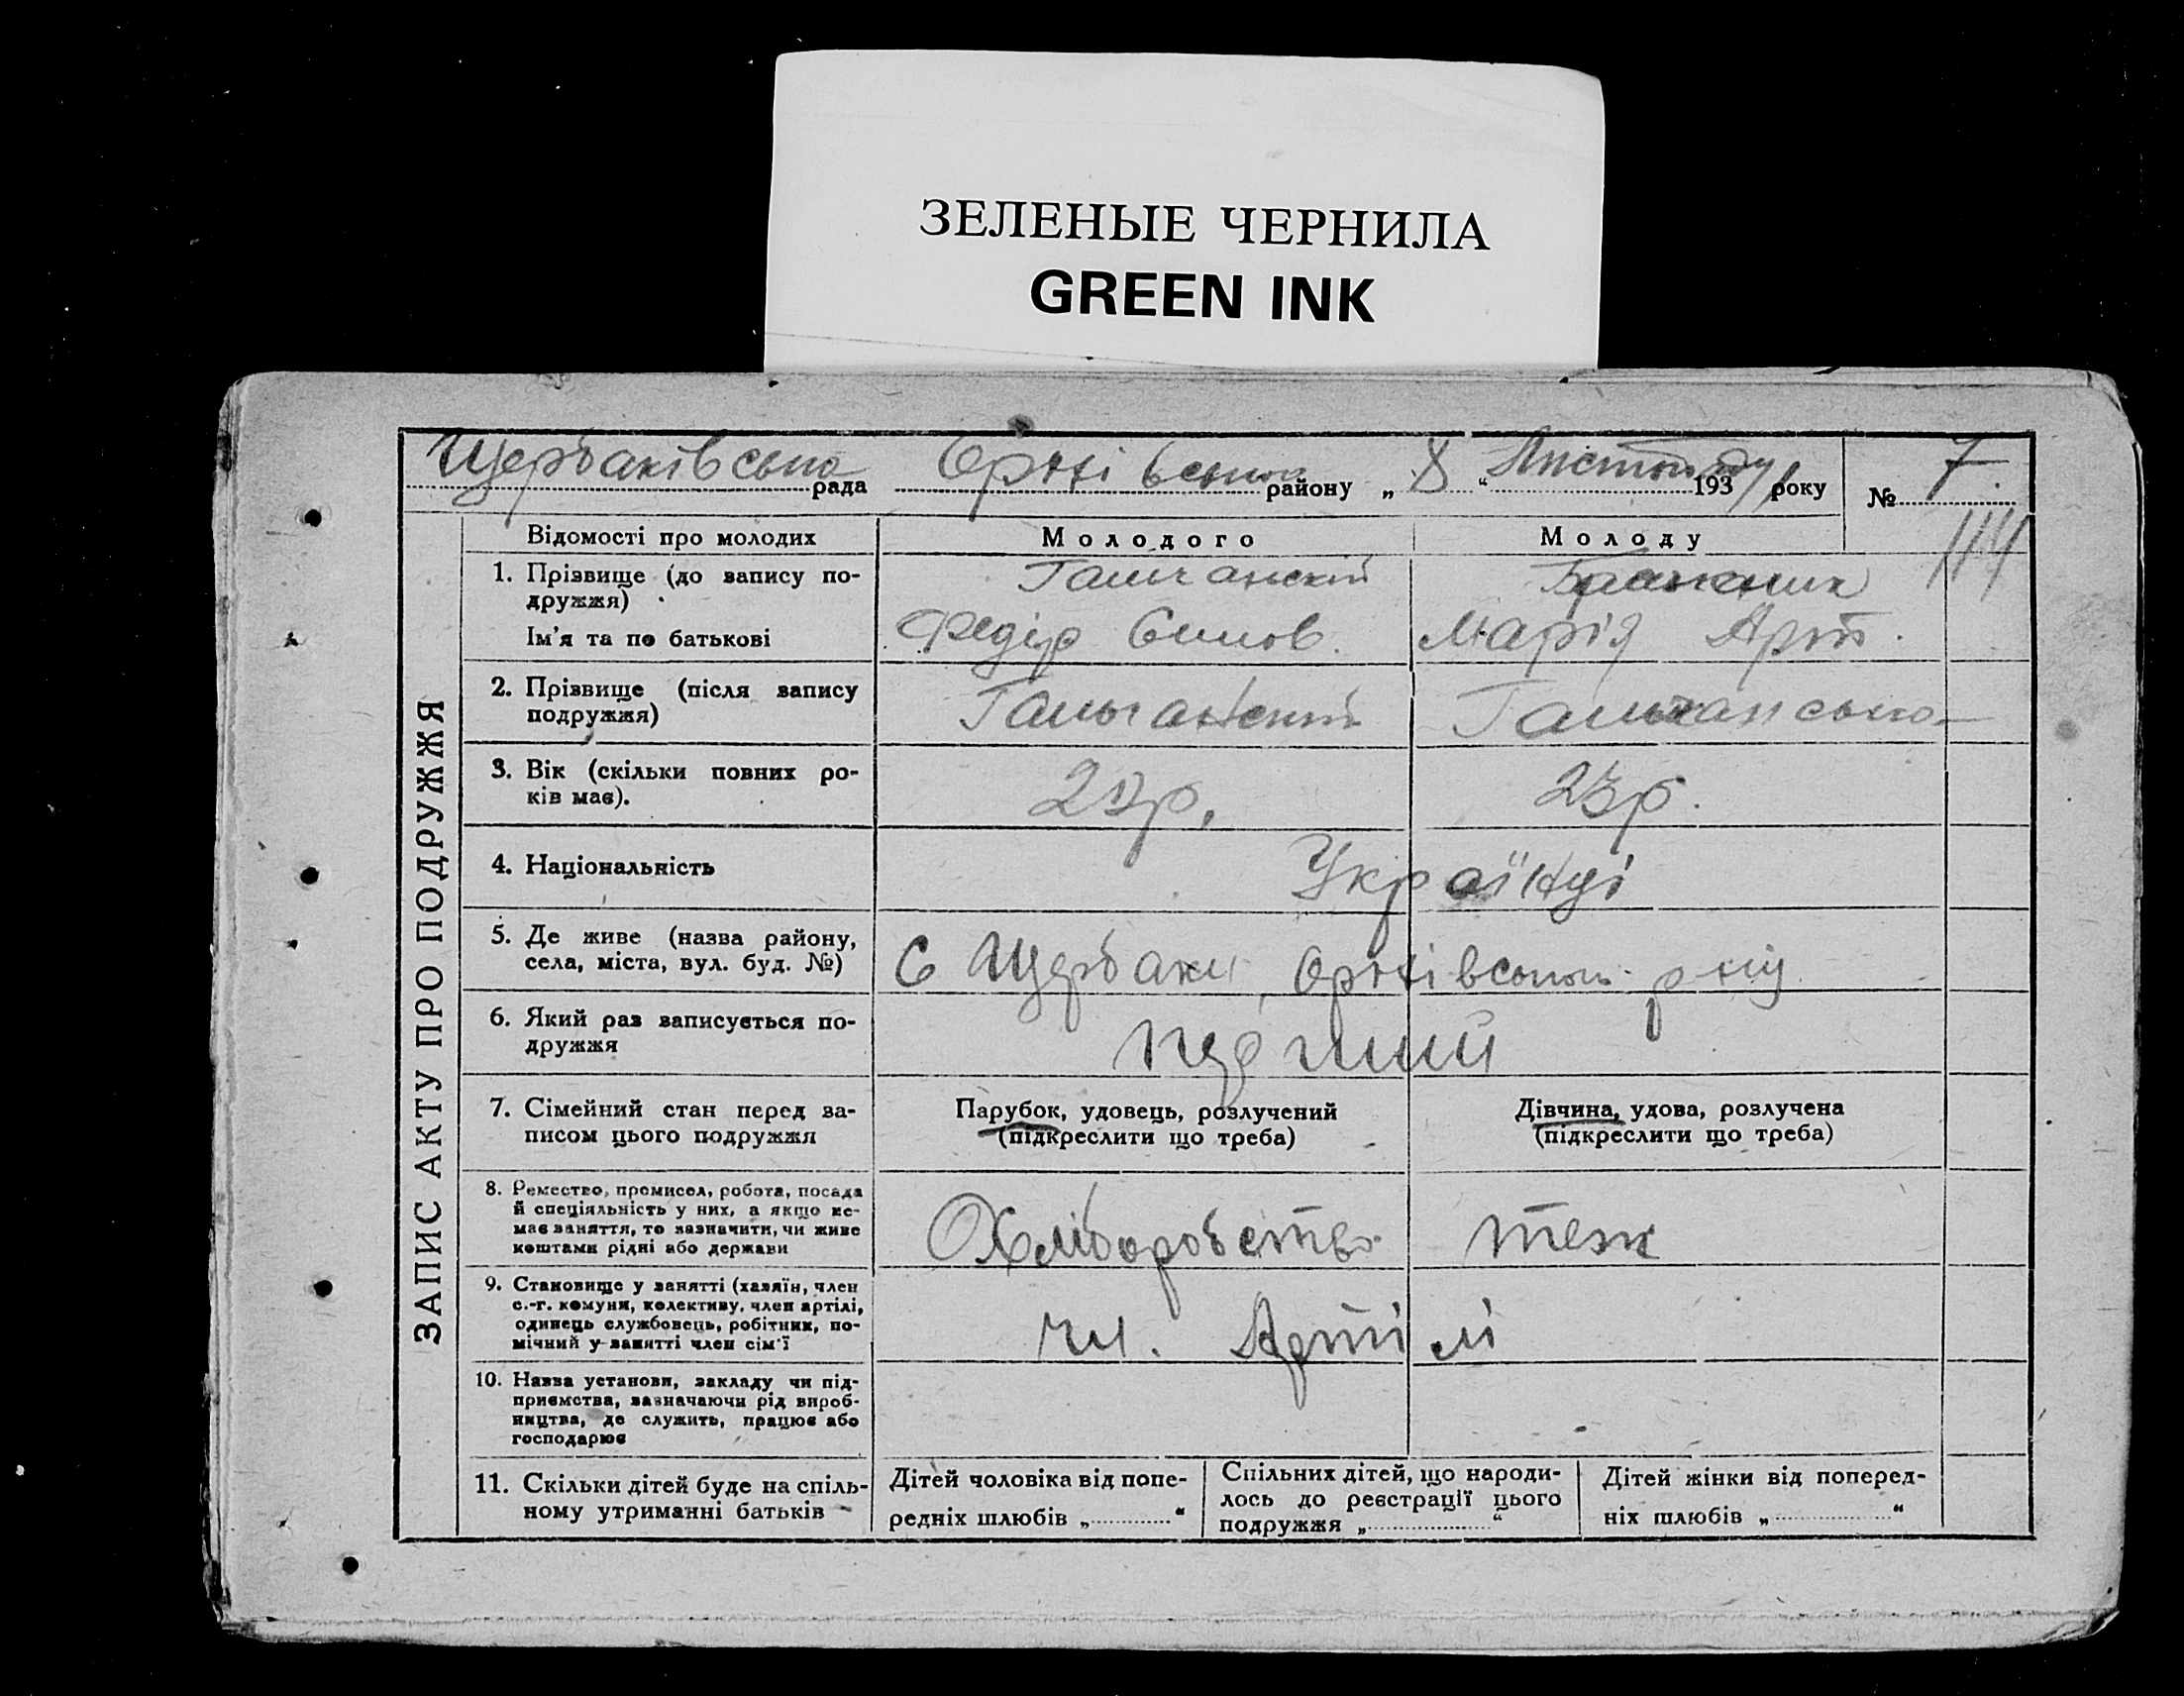 ЗЕЛЕНЫЕ ЧЕРНИЛА
GREEN INK
Щербаківська рада Оріхівського району „ 8 “ Листопаду 193 року № 7
114
ЗАПИС АКТУ ПРО ПОДРУЖЖЯ
Відомості про молодих Молодого Молоду
1. Прізвище (до запису по-
дружжя)
Ім'я та по батькові
Федір Марія Арт.
2. Прізвище (після запису
подружжя)
3. Вік (скільки повних ро-
ків має).
23р.
4. Національність
Українці
5. Де живе (назва району,
села, міста, вул. буд. №)
С Щербаки, Оріхівського р-ну
6. Який раз записується по-
дружжя
перший
7. Сімейний стан перед за-
писом цього подружжя
Парубок, удовець, розлучений
(підкреслити що треба)
Дівчина, удова, розлучена
(підкреслити що треба)
8. Ремество, промисел, робота, посада
й спеціяльність у них, а якщо не-
має заняття, то зазначити, чи живе
коштами рідні або держави
Хліборобство теж
9. Становище у занятті (хазяїн, член
с.-г. комуни, колективу, член артілі,
одинець службовець, робітник, по-
мічний у занятті член сім'ї
чл. Артілі
10. Назва установи, закладу чи під-
приємства, зазначаючи рід вироб-
ництва, де служить, працює або
господарює
11. Скільки дітей буде на спіль-
ному утриманні батьків
Дітей чоловіка від попе-
редніх шлюбів „ “
Спільних дітей, що народи-
лось до реєстрації цього
подружжя „ “
Дітей жінки від поперед-
ніх шлюбів „ “